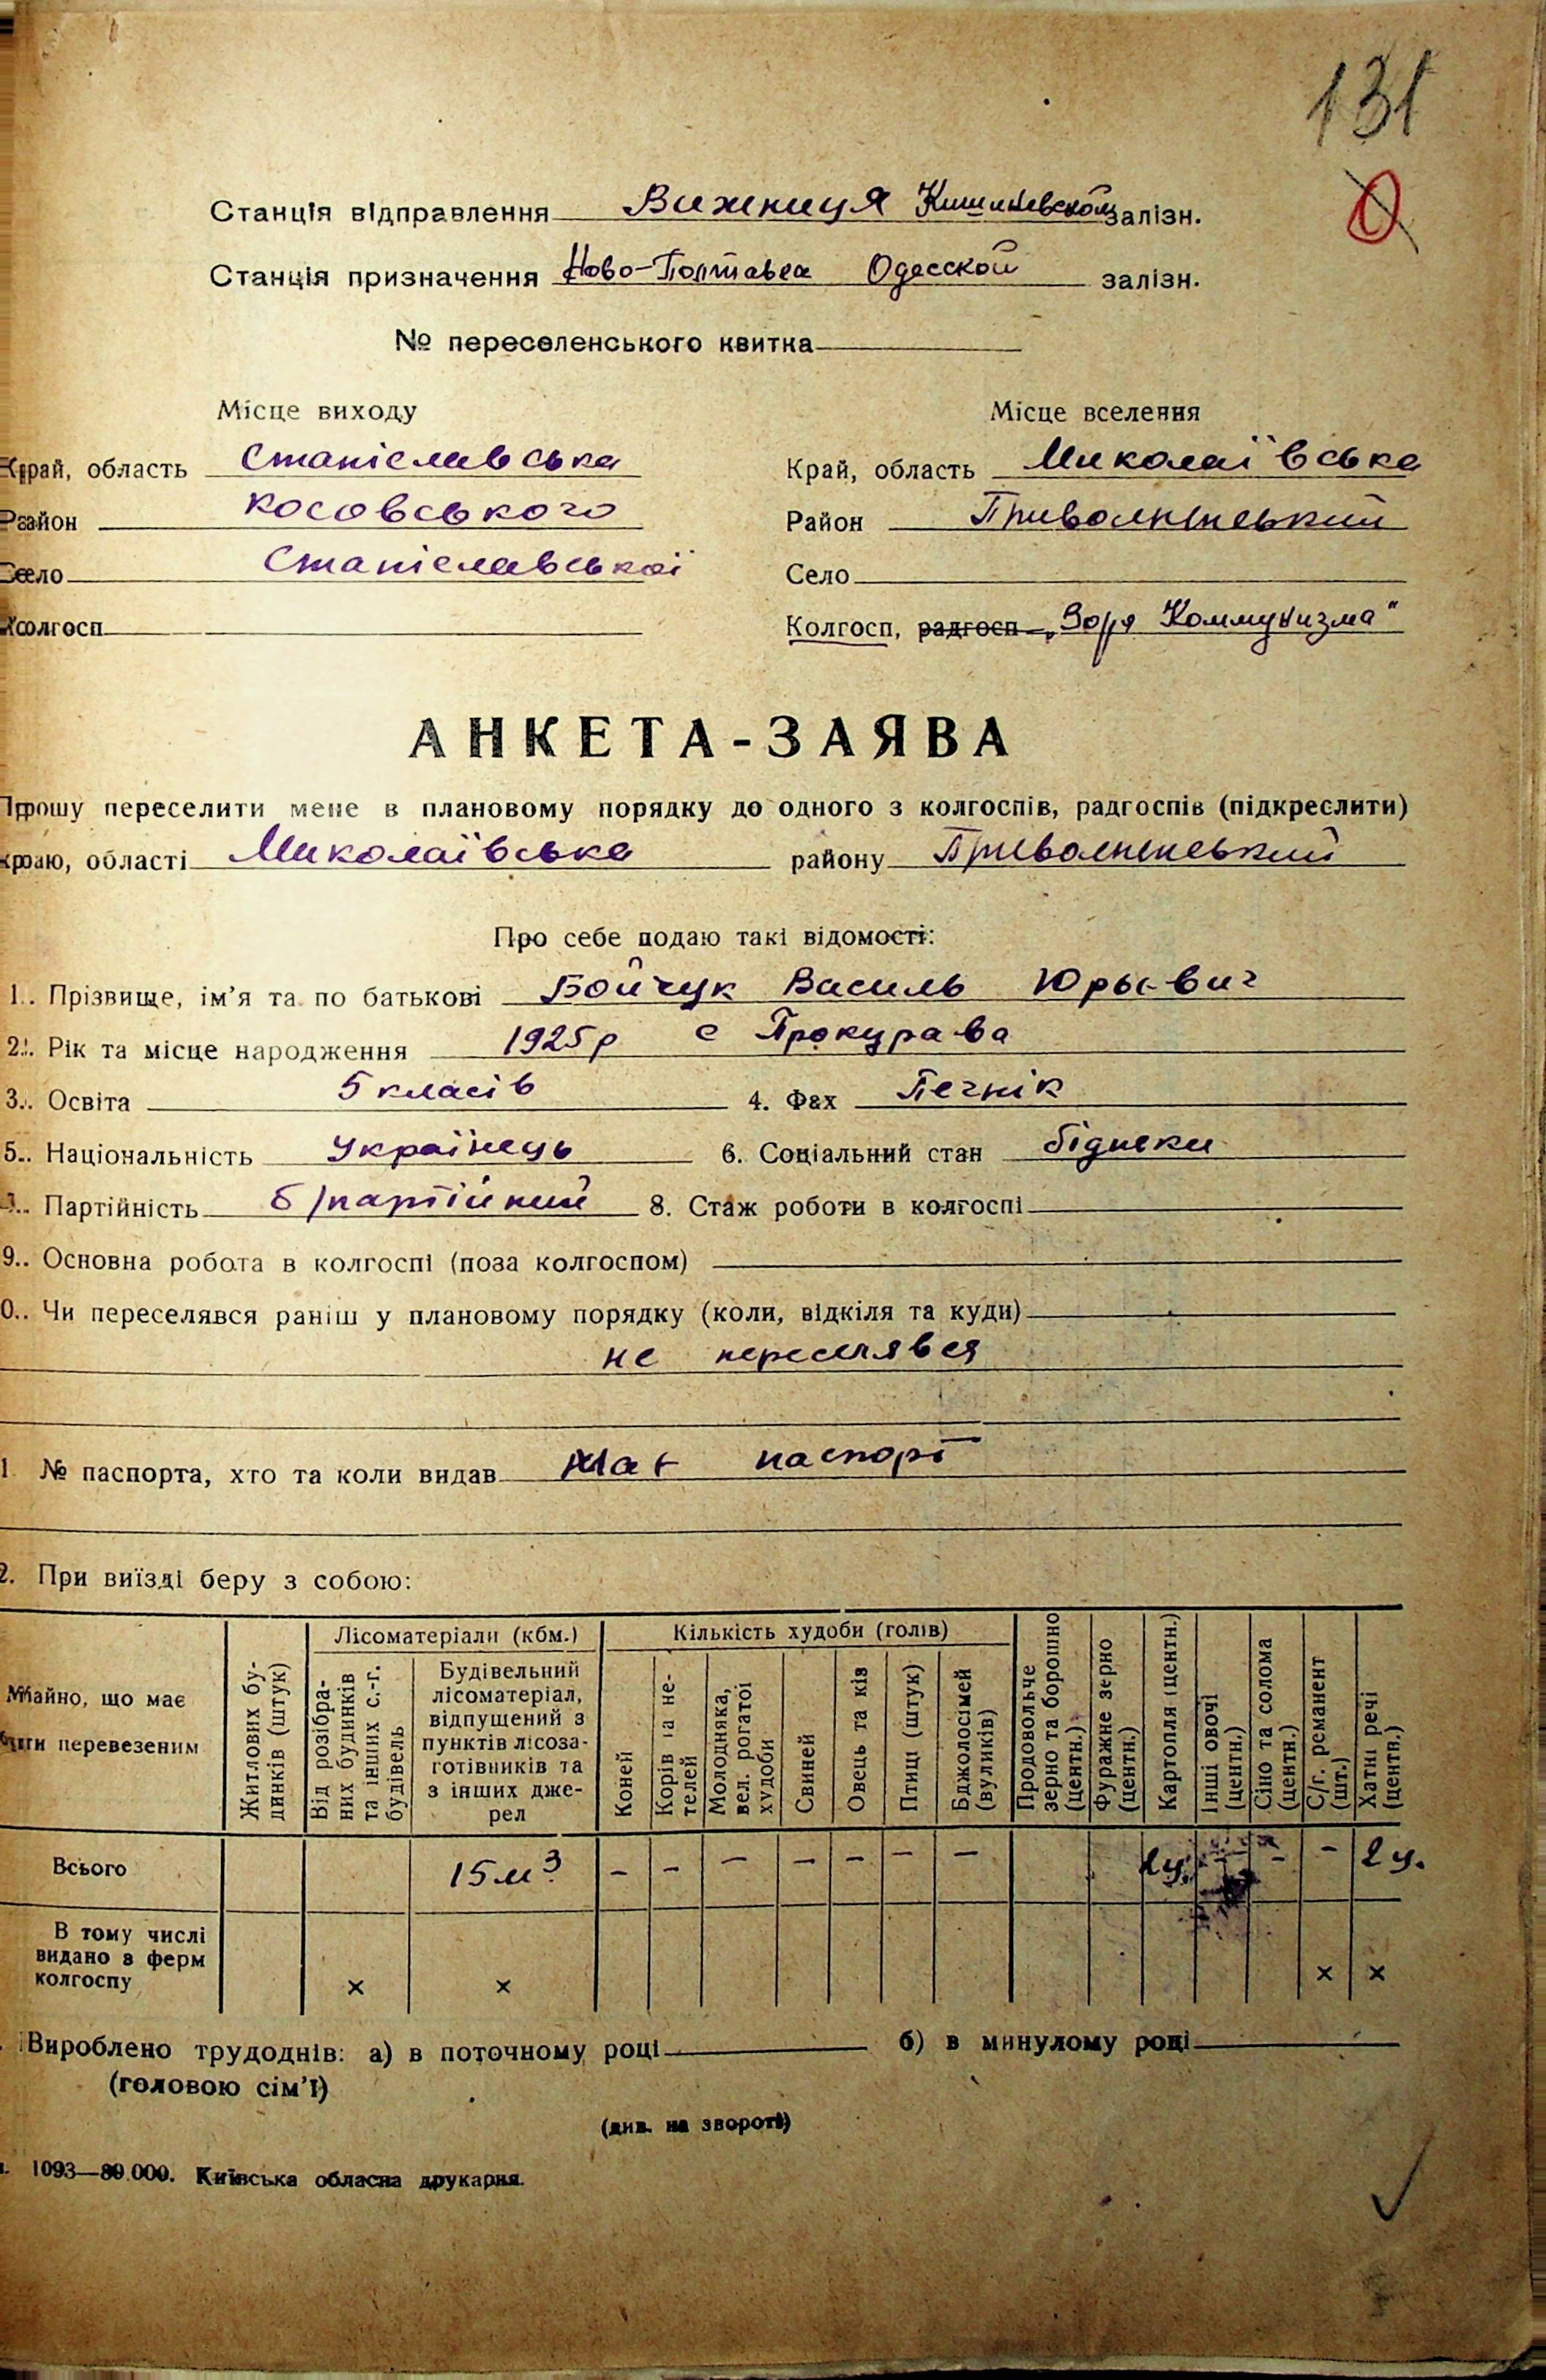 131
0
Станція відправлення Вижниця Кишиневской залізн.
Станція призначення Ново-Полтавка Одесской залізн.
№ переселенського квитка
Місце виходу
Місце вселення
Край, область Станіславська
Край, область Миколаївська
Район Косовського
Район Привольненський
Село Станіславської
Село
Колгосп
Колгосп, радгосп „Зоря Коммунизма"
АНКЕТА-ЗАЯВА
Прошу переселити мене в плановому порядку до одного з колгоспів, радгоспів (підкреслити)
краю, області Миколаївська району Привольненський
Про себе подаю такі відомості:
1. Прізвище, ім'я та по батькові Бойчук Василь Юрьевич
2. Рік та місце народження 1925р с Прокурава
3. Освіта 5 класів 4. Фах Печнік
5. Національність Українець 6. Соціальний стан бідняки
Партійність б/партійний 8. Стаж роботи в колгоспі
9. Основна робота в колгоспі (поза колгоспом)
0. Чи переселявся раніш у плановому порядку (коли, відкіля та куди)
не переселявся
1 № паспорта, хто та коли видав має паспорт
2. При виїзді беру з собою:
Майно, що має бути перевезеним
Житлових будинків (штук)
Лісоматеріали (кбм.)
Від розібраних будинків та інших с.-г. будівель
Будівельний лісоматеріал, відпущений з пунктів лісозаготівників та з інших джерел
Кількість худоби (голів)
Коней
Корів та нетелей
Молодняка, вел. рогатої худоби
Свиней
Овець та кіз
Птиці (штук)
Бджолосімей (вуликів)
Продовольче зерно та борошно (центн.)
Фуражне зерно (центн.)
Картопля (центн.)
Інші овочі (центн.)
Сіно та солома (центн.)
С/г. реманент (шт.)
Хатні речі (центв.)
Всього 15 м³ – – – – – – – 2ц. – – – 2 ц.
В тому числі видано з ферм колгоспу × × × ×
Вироблено трудоднів: а) в поточному році б) в минулому році
(головою сім'ї)
(див. на звороті)
1093—80.000. Київська обласна друкарня.